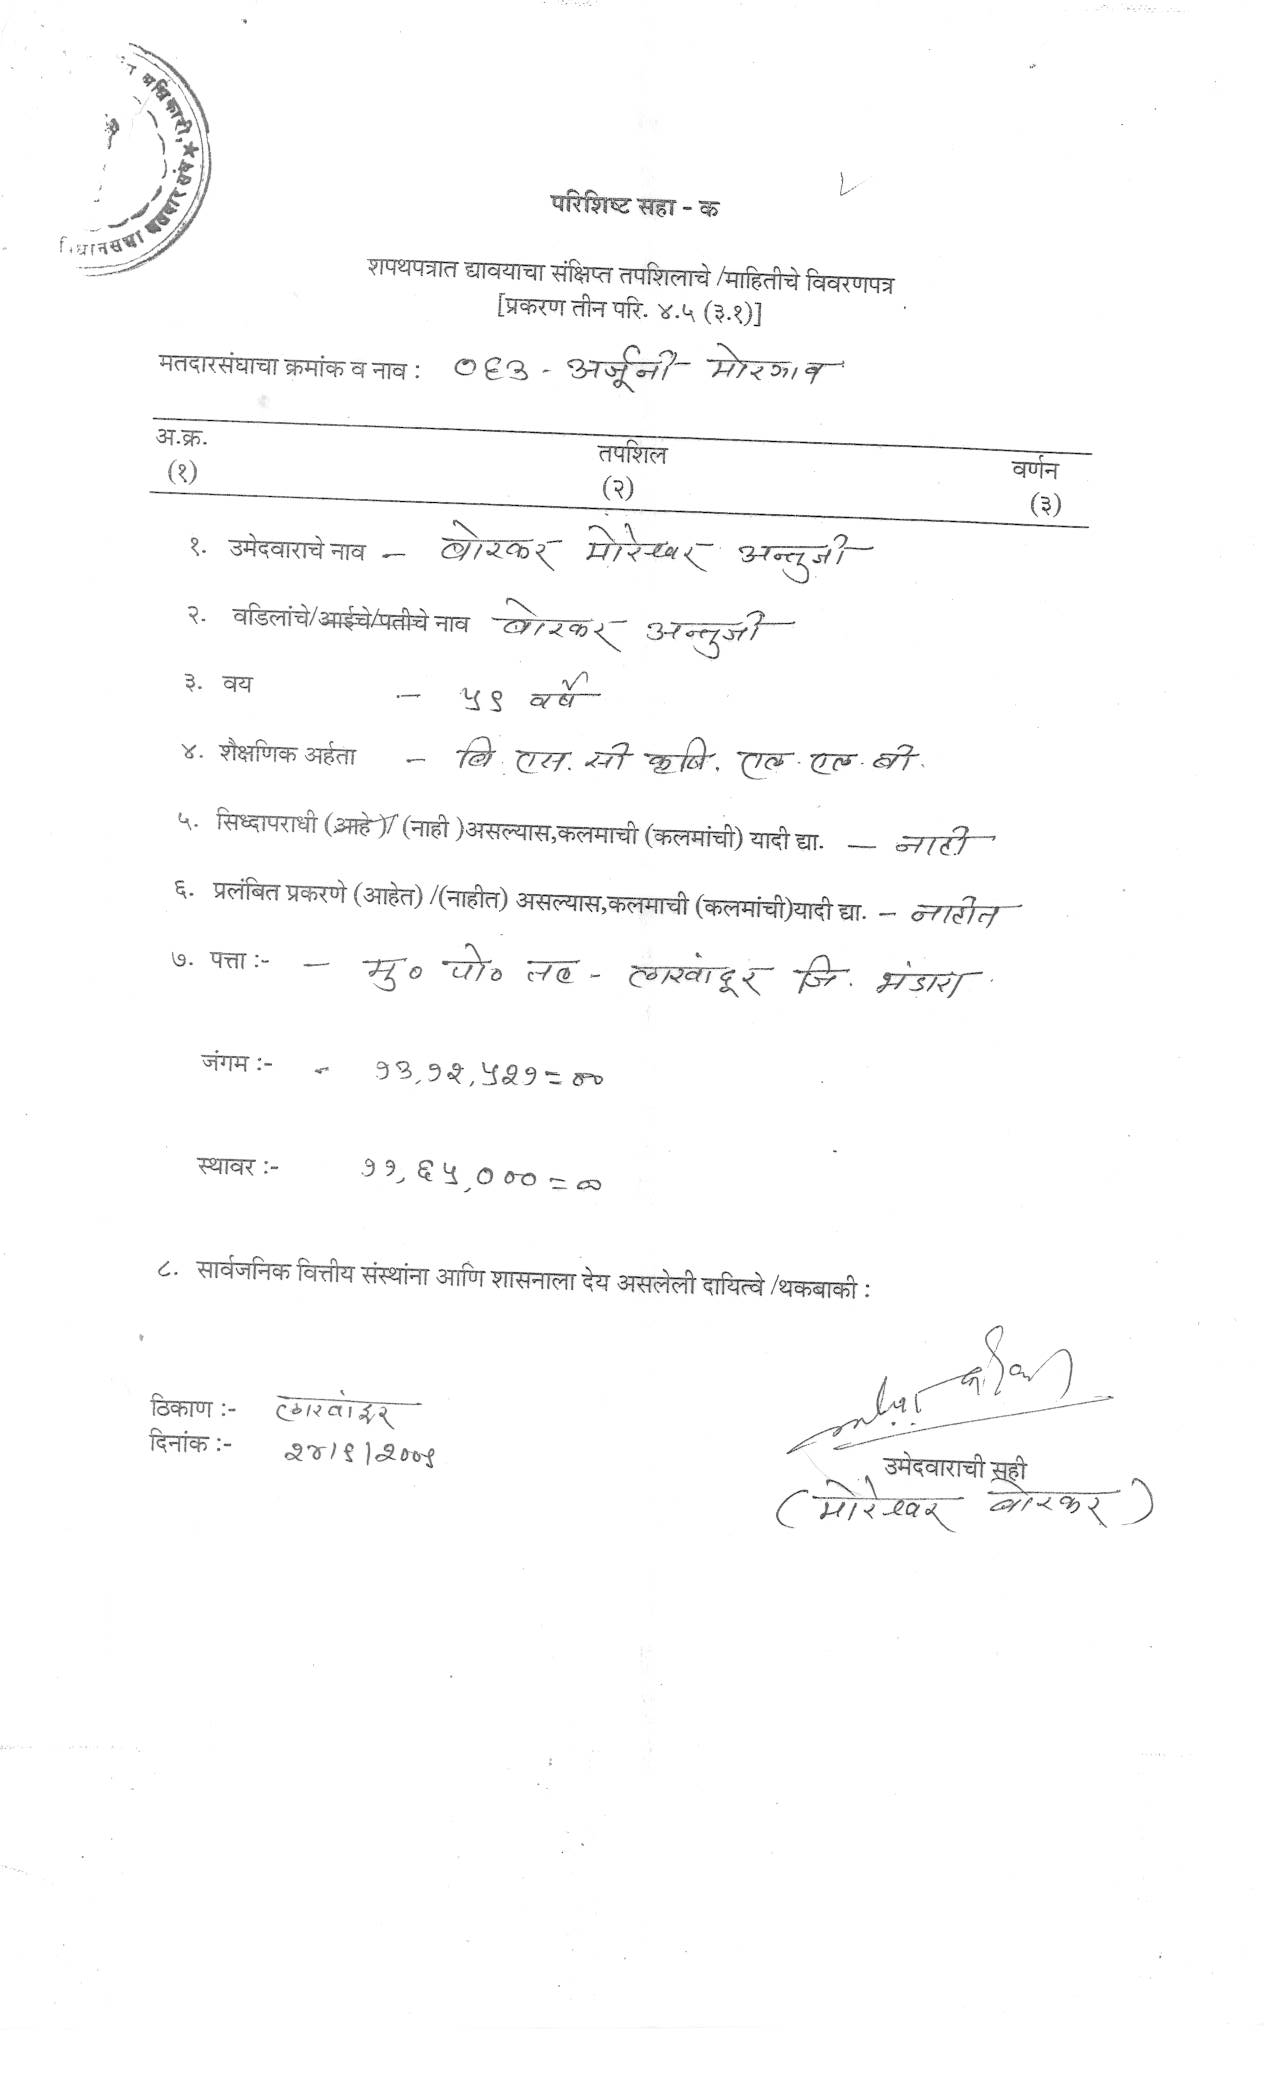 अधिकारी, ★
विधानसभा मतदार संघ
परिशिष्ट सहा - क
शपथपत्रात द्यावयाचा संक्षिप्त तपशिलाचे /माहितीचे विवरणपत्र
[प्रकरण तीन परि. ४.५ (३.१)]
मतदारसंघाचा क्रमांक व नाव : ०६३ - अर्जूनी मोरगाव
अ.क्र. तपशिल वर्णन
(१) (२) (३)
१. उमेदवाराचे नाव – बोरकर मोरेश्वर अन्तुजी
२. वडिलांचे/आईचे/पतीचे नाव बोरकर अन्तुजी
३. वय – ५९ वर्षे
४. शैक्षणिक अर्हता – बि. एस. सी कृषि. एल. एल. बी.
५. सिध्दापराधी (आहे)/ (नाही )असल्यास,कलमाची (कलमांची) यादी द्या. – नाही
६. प्रलंबित प्रकरणे (आहेत) /(नाहीत) असल्यास,कलमाची (कलमांची)यादी द्या. – नाहीत
७. पत्ता :- – मु० पो० तह - लाखांदूर जि. भंडारा
जंगम :- - १३,१२,५२१=००
स्थावर :- ११,६५,०००=००
८. सार्वजनिक वित्तीय संस्थांना आणि शासनाला देय असलेली दायित्वे /थकबाकी :
ठिकाण :- लाखांदूर
दिनांक :- २४/९/२००९
उमेदवाराची सही
(मोरेश्वर बोरकर)